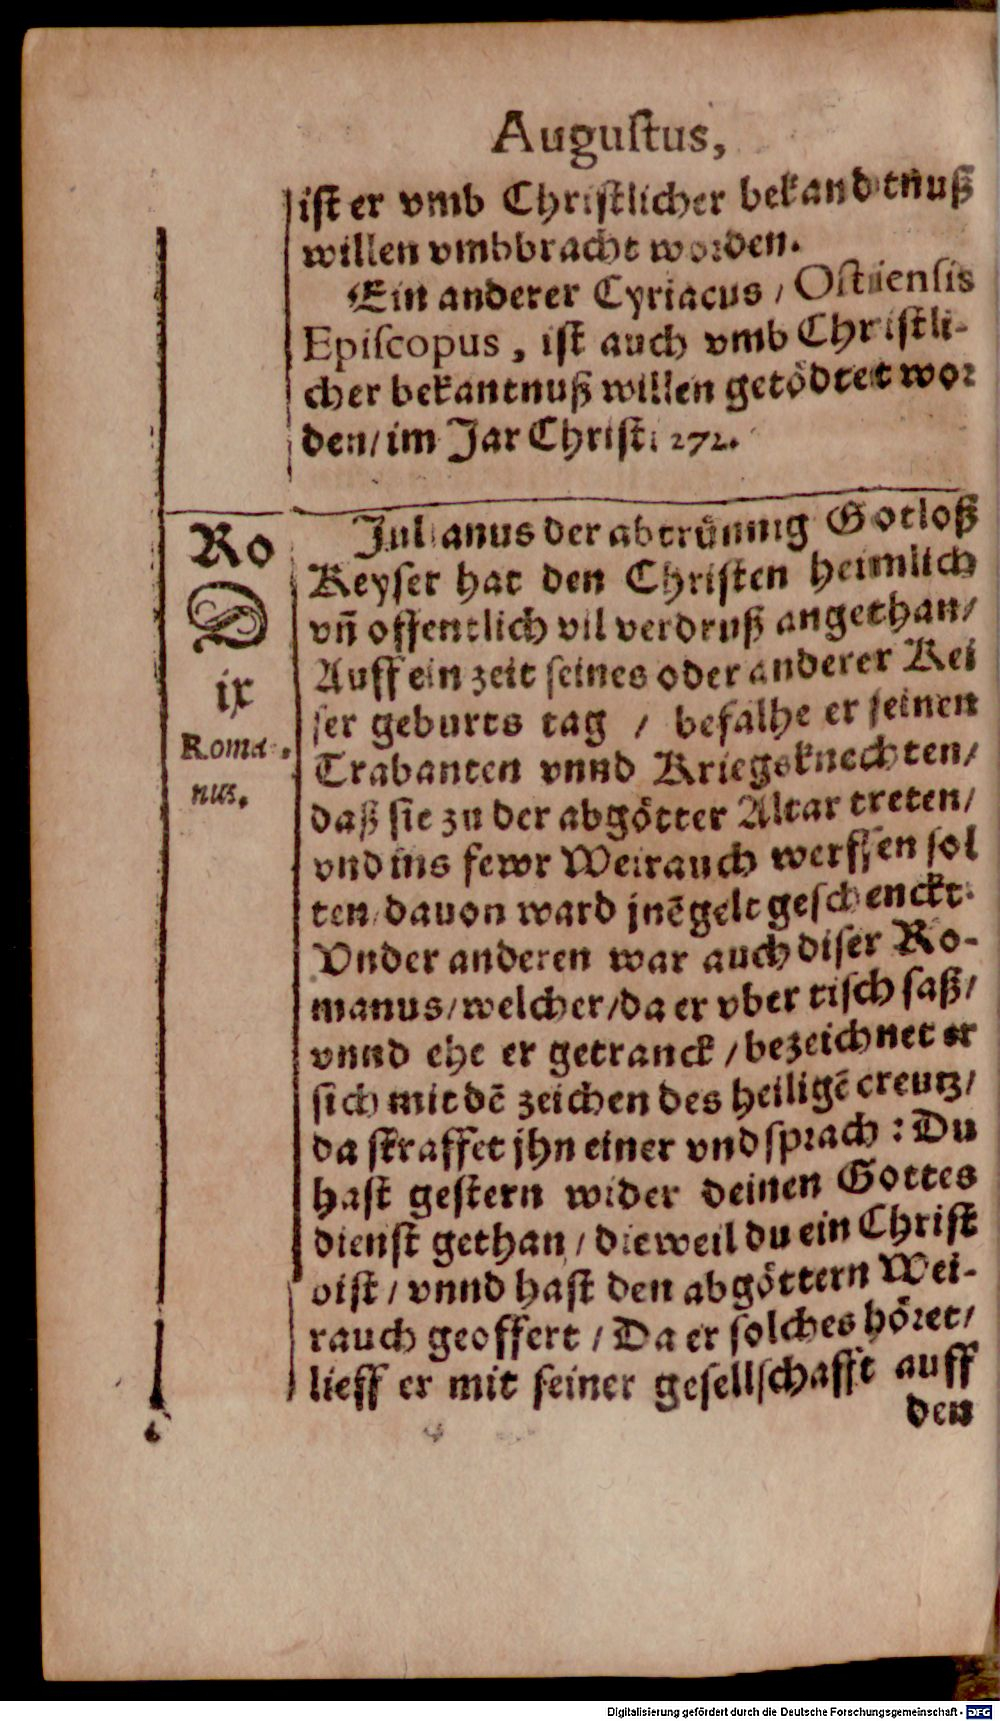 Augustus,
ist er vmb Christlicher bekandtnuß
willen vmbbracht worden.
Ein anderer Cyriacus / Ostiensis
Episcopus, ist auch vmb Christli-
cher bekantnuß willen getödtet wor
den / im Jar Christi 272.
Ro
D
ix
Roma-
nus.
Julianus der abtrünnig Gotloß
Keyser hat den Christen heimlich
vñ offentlich vil verdruß angethan /
Auff ein zeit seines oder anderer Kei
ser geburts tag / befalhe er seinen
Trabanten vnnd Kriegsknechten /
daß sie zu der abgötter Altar treten /
vnd ins fewr Weirauch werffen sol
ten / dauon ward jnē gelt geschenckt.
Vnder anderen war auch diser Ro-
manus / welcher / da er vber tisch saß /
vnnd ehe er getranck / bezeichnet er
sich mit dē zeichen des heiligē creutz /
da straffet jhn einer vnd sprach : Du
hast gestern wider deinen Gottes
dienst gethan / dieweil du ein Christ
bist / vnnd hast den abgöttern Wei-
rauch geoffert / Da er solches höret /
lieff er mit seiner gesellschafft auff
den
Digitalisierung gefördert durch die Deutsche Forschungsgemeinschaft - DFG